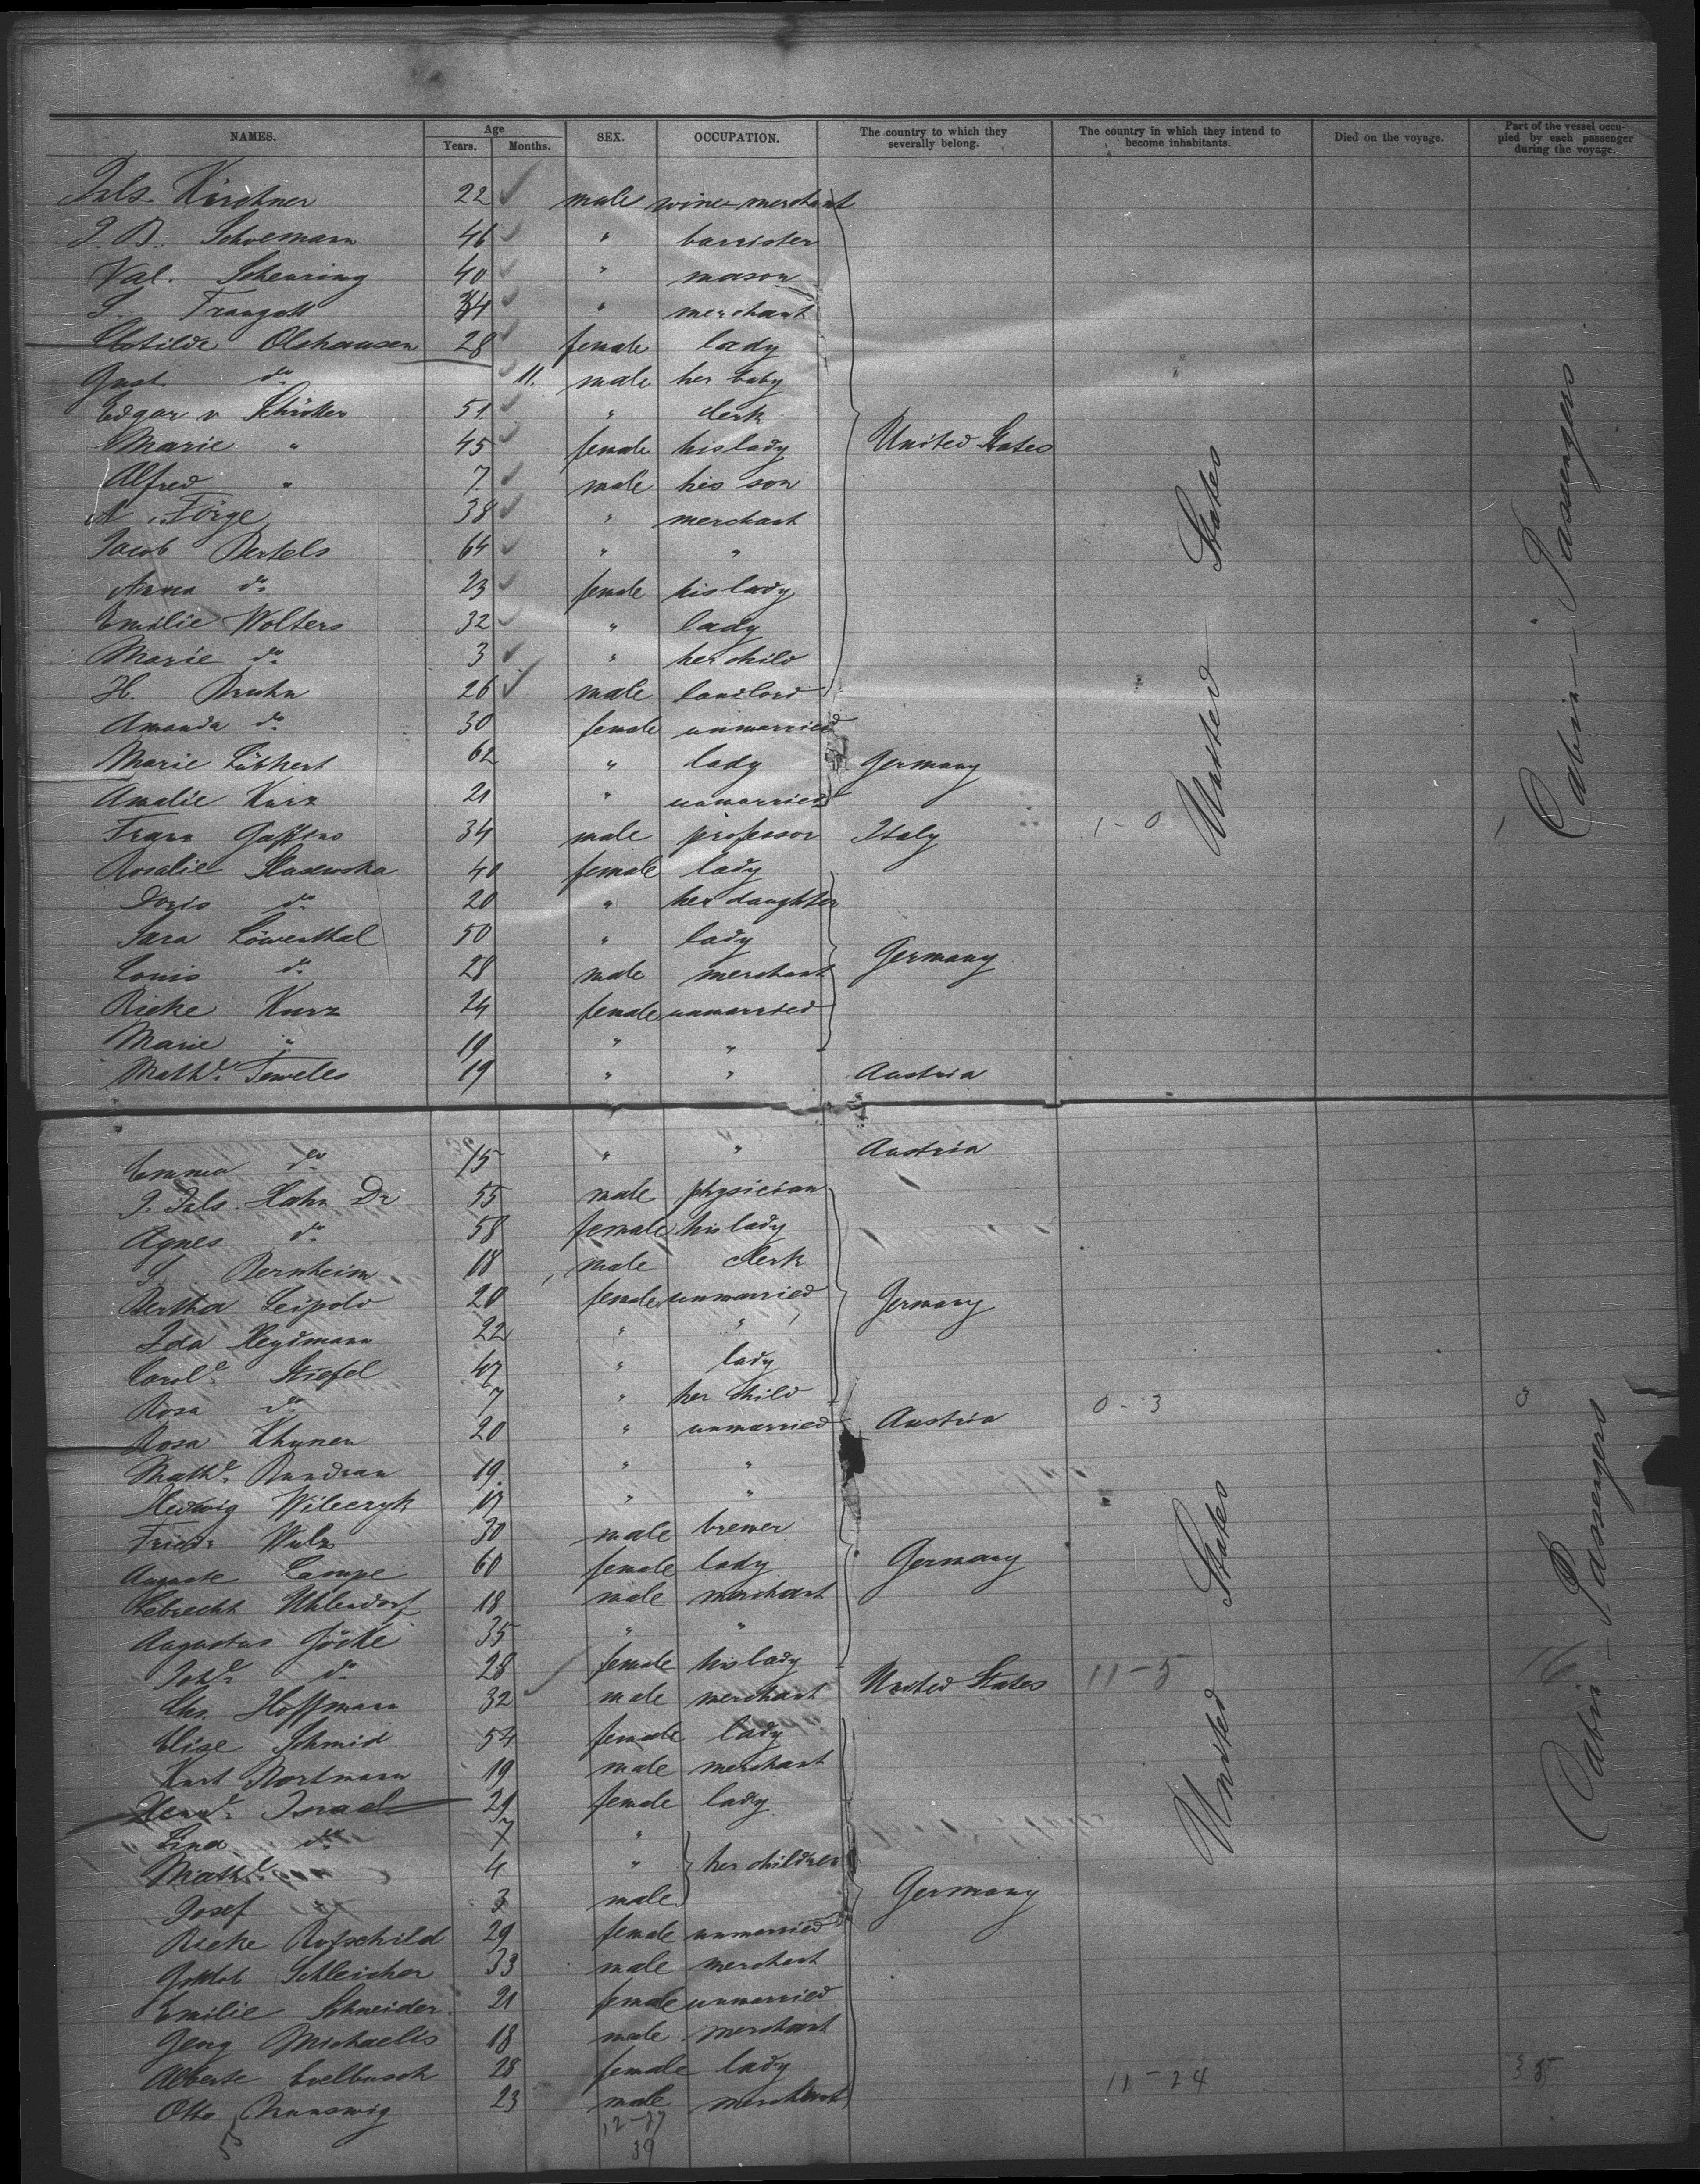 NAMES. Age Years. Months. SEX. OCCUPATION. The country to which they severally belong. The country in which they intend to become inhabitants. Died on the voyage. Part of the vessel occupied by each passenger during the voyage.
Juls. Kirchner 22 male wine-merchant
J. B. Schoemann 46 " barrister
Val. Scheuring 40 " mason
S. Traugott 34 " merchant
Clotilde Olshausen 28 female lady
Gust. do 11. male her baby
Edgar v Schröter 51 " clerk
Marie " 45 female his lady United States
Alfred " 7 male his son
A. Förge 38 " merchant
Jacob Bertels 64 " "
Anna do 23 female his lady
Emilie Wolters 32 " lady
Marie do 3 " her child
H. Bruhn 26 male landlord
Amanda do 30 female unmarried
Marie Lübkert 62 " lady Germany
Amalie Kurz 21 " unmarried
Franz 34 male professor Italy 1 - 0 1
Rosalie 40 female lady
Doris do 20 " her daughter
Sara Löwenthal 50 " lady
Louis do 28 male merchant Germany
Rieke Kurz 24 female unmarried
Marie " 19 " "
Mathe. Teweles 19 " " Austria
United States
Cabin-Passengers
Emma do 15 " " Austria
J. Juls. Hahn Dr 55 male physician
Agnes do 58 female his lady
S. Bernheim 18 male clerk
Bertha Leipold 20 female unmarried Germany
Ida Heydmann 22 " "
Carole. Stiefel 47 " lady
Rosa do 7 " her child
Rosa Khunen 20 " unmarried Austria 0 - 3 3
Mathe. 19 " "
Hedwig Wilczyk 17 " "
Friedr Walz 30 male brewer
Auguste Lampe 60 female lady Germany
Lebrecht Uhlendorf 18 male merchant
Augustus Göcke 35 " "
Johe. do 28 female his lady
Chs. Hoffmann 32 male merchant United States 11 - 5 16
Elise Schmid 54 female lady
Kurt Bortmann 19 male merchant
Henre. Israel 29 female lady
Lina do 7 "
Mathe. 4 " her children
Josef 3 male Germany
Rieke Rotschild 29 female unmarried
Gottlob Schleicher 33 male merchant
Emilie Schneider 21 female unmarried
Georg Michaelis 18 male merchant
Alberte 28 female lady 11 - 24 35
Otto Brunswig 23 male merchant
United States
Cabin-Passengers
5 12-27
39